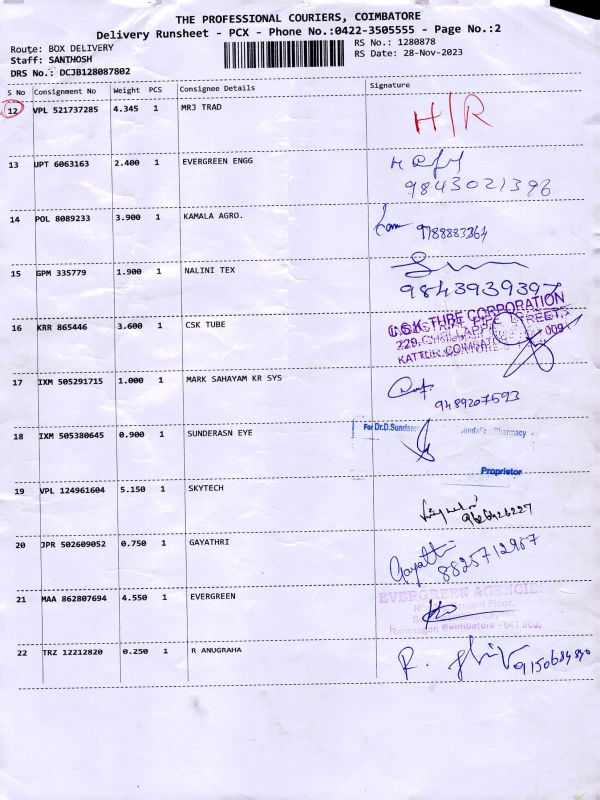 THE PROFESSIONAL COURIERS, COIMBATORE
Delivery Runsheet - PCX - Phone No.:0422-3505555 - Page No.:2
Route: BOX DELIVERY RS No.: 1280878
Staff: SANTHOSH RS Date: 28-Nov-2023
DRS No.: DCJB128087802
S No Consignment No Weight PCS Consignee Details Signature
12 VPL 521737285 4.345 1 MRJ TRAD H/R
13 UPT 6063163 2.400 1 EVERGREEN ENGG
9843021396
14 POL 8089233 3.900 1 KAMALA AGRO. 9788883364
15 GPM 335779 1.900 1 NALINI TEX
9843939397
16 KRR 865446 3.600 1 CSK TUBE C.S.K TUBE CORPORATION
STREET,
KATTUR, COIMBATORE 009
17 IXM 505291715 1.000 1 MARK SAHAYAM KR SYS
9489207593
18 IXM 505380645 0.900 1 SUNDERASN EYE For Dr.D.Sundar Pharmacy
Proprietor
19 VPL 124961604 5.150 1 SKYTECH
9626426227
20 JPR 502609052 0.750 1 GAYATHRI Gayathri
8825712957
21 MAA 862807694 4.550 1 EVERGREEN EVERGREEN AGENCIE
Ground Floor,
Ramnagar, Coimbatore - 641 009.
22 TRZ 12212820 0.250 1 R ANUGRAHA R. 9150684890